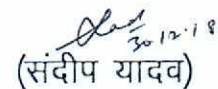 30.12.18
(संदीप यादव)